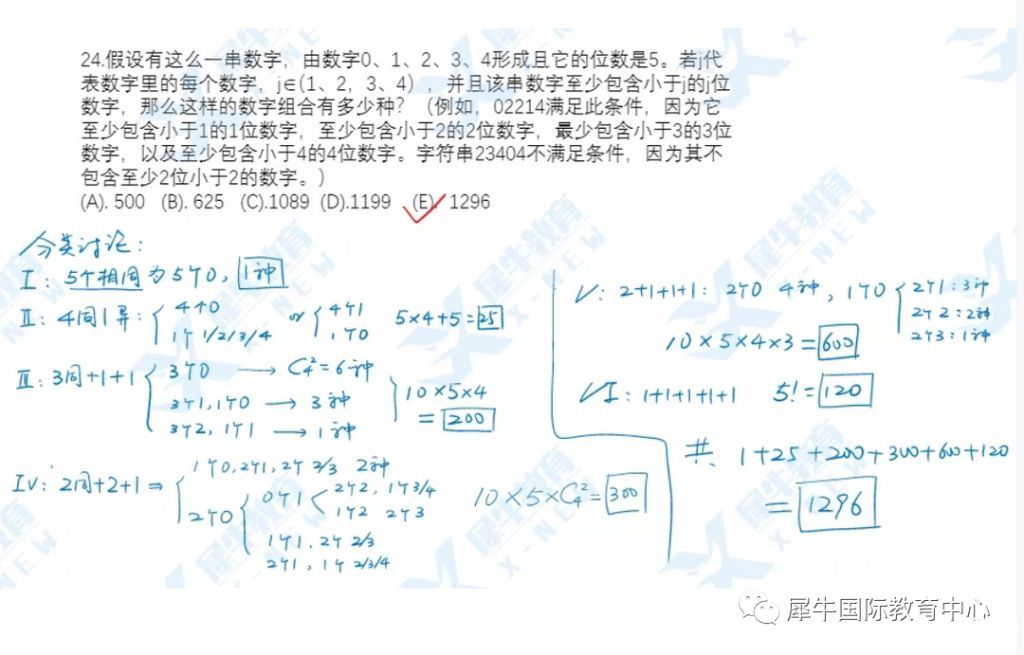 24.假设有这么一串数字，由数字0、1、2、3、4形成且它的位数是5。若j代
表数字里的每个数字，j∈(1、2，3、4），并且该串数字至少包含小于j的j位
数字，那么这样的数字组合有多少种？（例如，02214满足此条件，因为它
至少包含小于1的1位数字，至少包含小于2的2位数字，最少包含小于3的3位
数字，以及至少包含小于4的4位数字。字符串23404不满足条件，因为其不
包含至少2位小于2的数字。)
(A). 500 (B). 625 (C).1089 (D).1199 (E). 1296
分类讨论：
I：5个相同为5个0，1种
II：4同1异：
4个0
1个 1/2/3/4
or
4个1
1个0
5×4+5=25
III：3同+1+1
3个0 → C₄²=6种
3个1,1个0 → 3种
3个2,1个1 → 1种
10×5×4
=200
IV：2同+2+1 ⇒
1个0,2个1,2个2/3 2种
2个0
0个1
2个2，1个3/4
1个2 2个3
1个1．2个2/3
2个1，1个2/3/4
10×5×C₄²=300
V：2+1+1+1：2个0 4种，1个0
2个1：3种
2个2：2种
2个3：1种
10×5×4×3=600
VI：1+1+1+1+1 5!=120
共 1+25+200+300+600+120
=1296
犀牛教育
X-NEW
犀牛国际教育中心